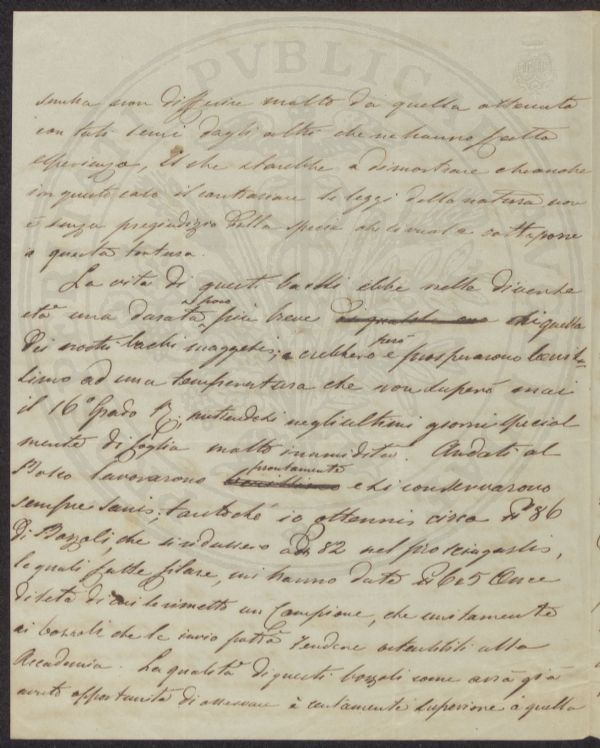 sembra non differire molto da quella ottenuta
con tali semi dagli altri che ne hanno fatta
esperienza, il che sarebbe a dimostrare che anche
in questo caso il contrariare le leggi della natura non
è senza pregiudizio della specie che si vuol sottoporre
a questa tortura.
La vita di questi bachi ebbe nelle diverse
età una durata più breve di qualche di quella
dei nostri bachi maggesi; crebbero però e prosperarono benis-
simo ad una temperatura che non superò mai
il 16° grado R, nutrendosi negli ultimi giorni special
mente di foglia molto inumidita. Andati al
Bosco lavorarono prontamente e si conservarono
sempre sani; tantoché io ottenni circa 86
di Bozzoli, che si ridussero a 82 nel prosciugarsi,
le quali fatte filare, mi hanno dato 6 e 5 Once
di seta di cui le rimetto un Campione, che unitamente
ai bozzoli che le invio potrà rendere ostensibili alla
Accademia. La qualità di questi bozzoli come avrà già
avuto opportunità di osservare è certamente superiore a quella